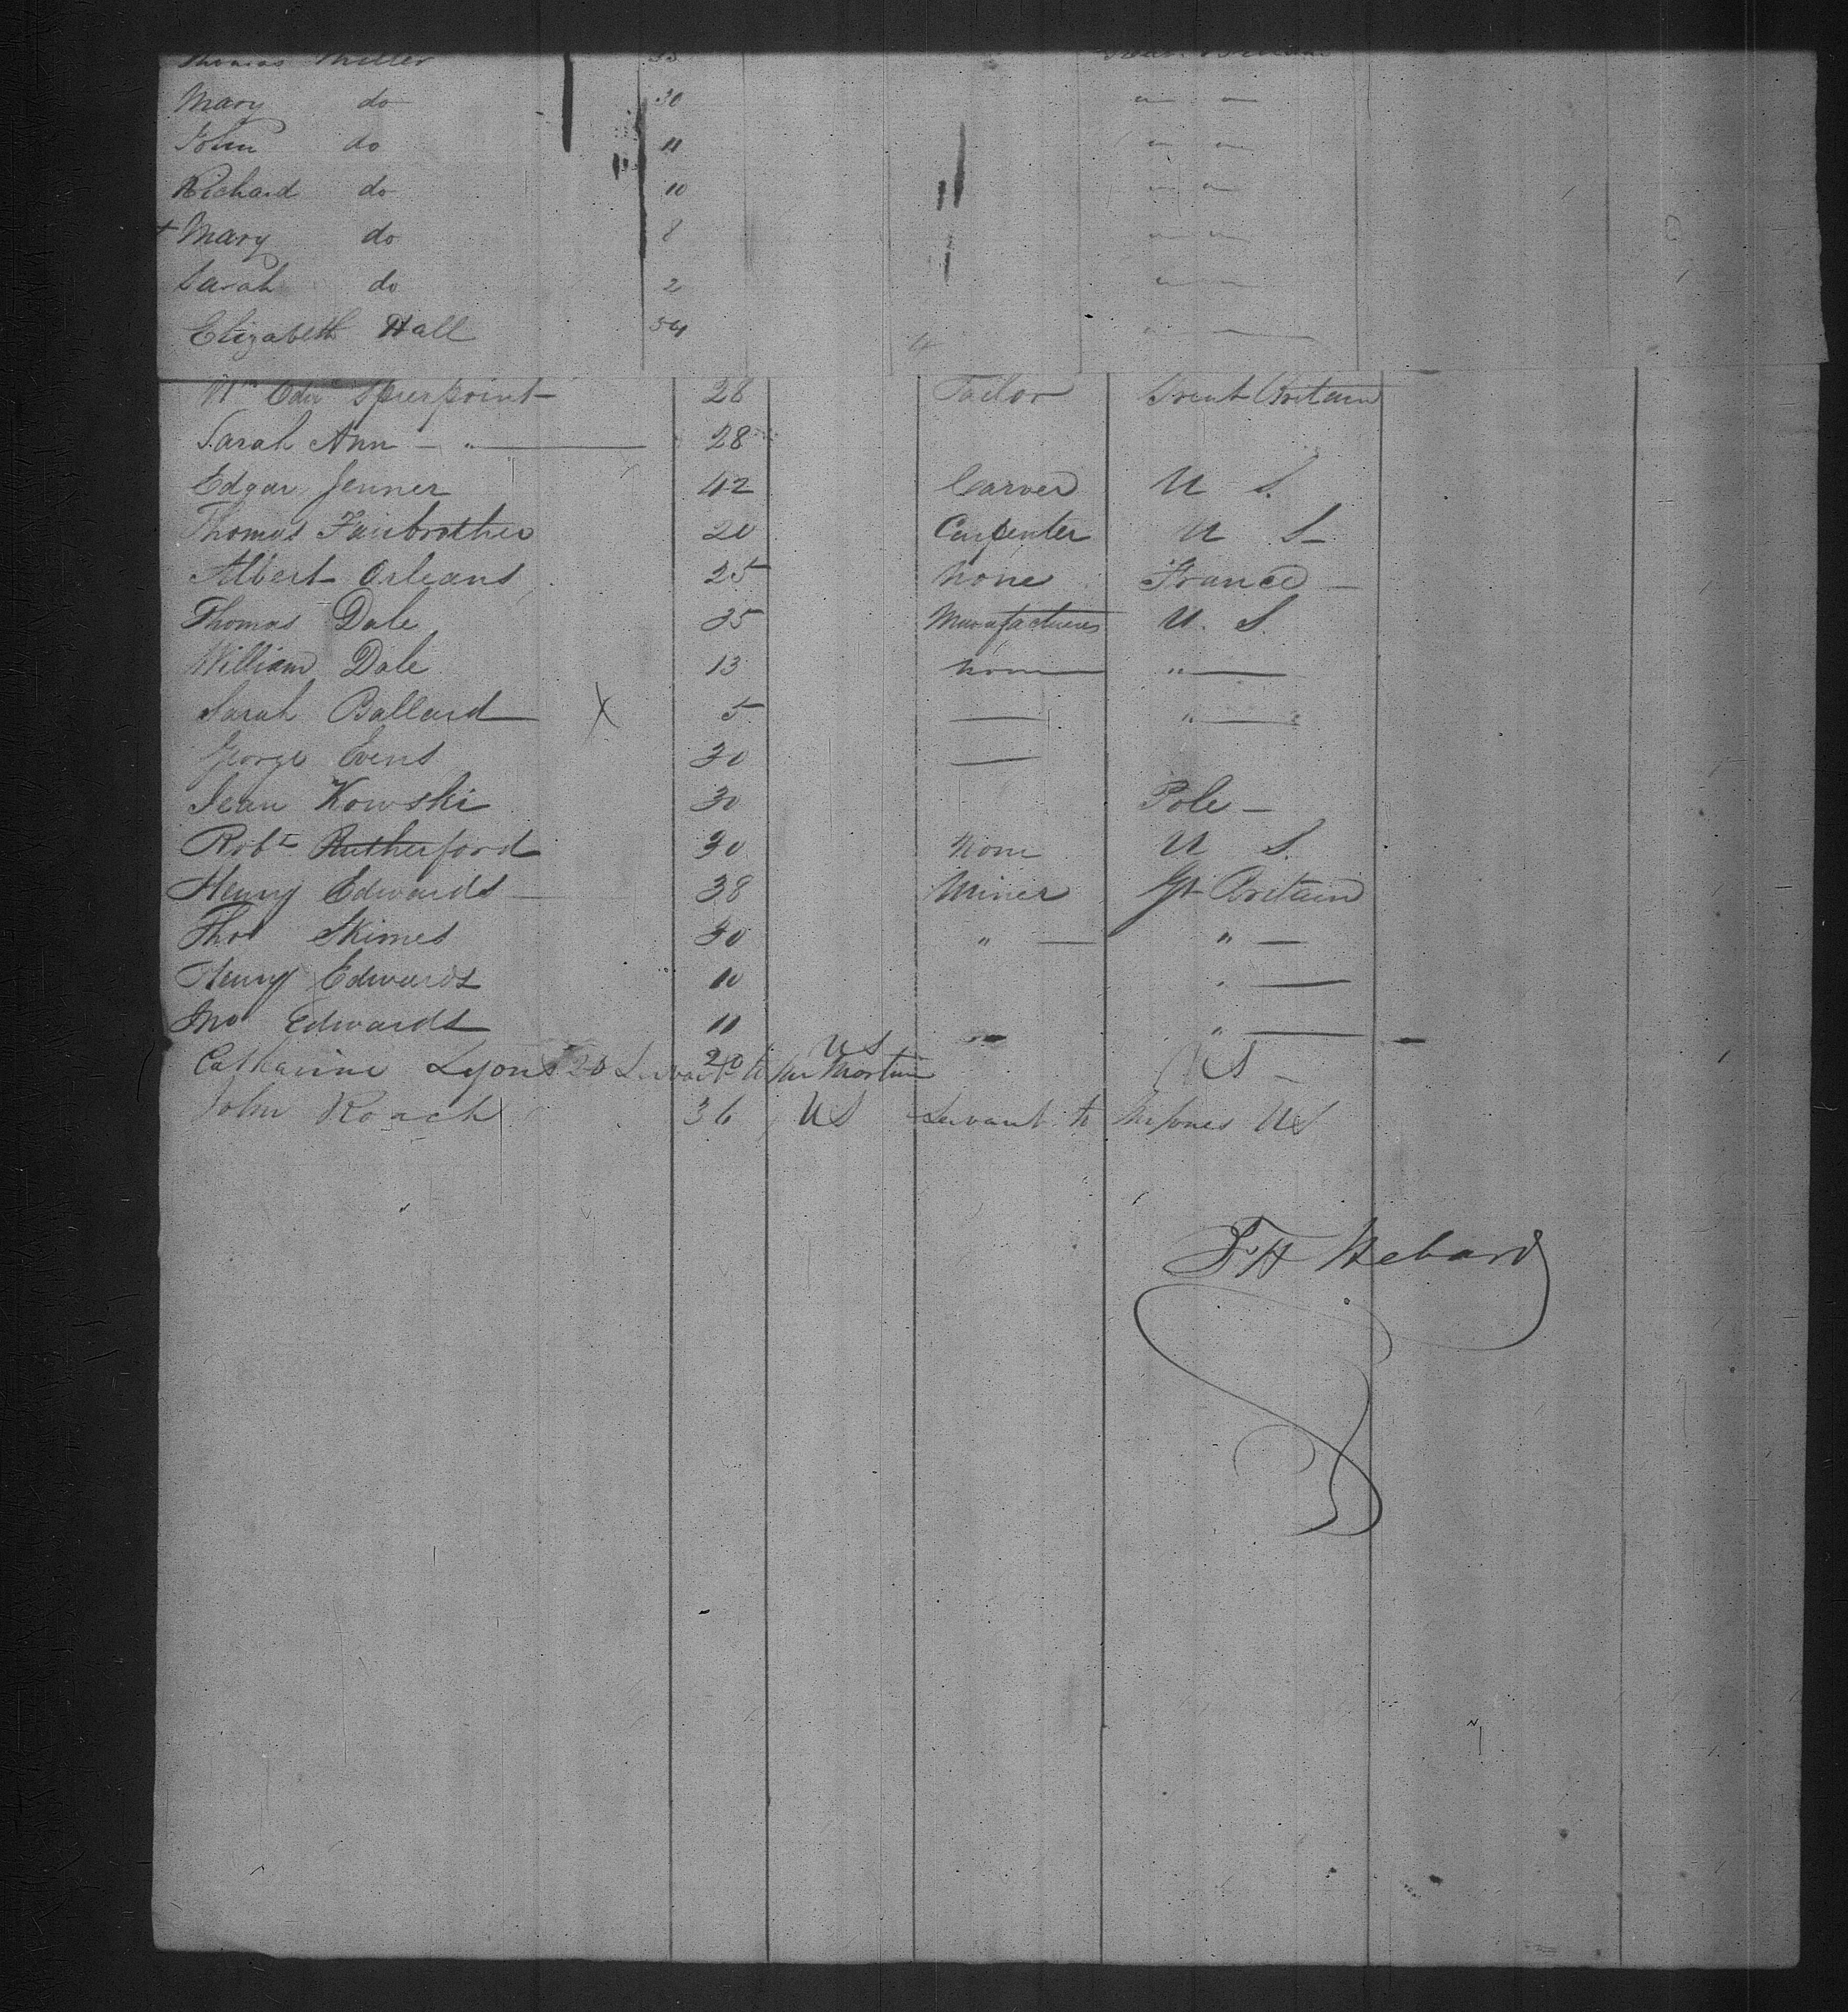 Thomas Miller 35
Mary do 30 " "
John do 11 " "
Richard do 10 " "
+ Mary do 8 " "
Sarah do 2 " "
Elizabeth Hall 54 "
Wm Edwd Spierpoint 28 Tailor Great Britain
Sarah Ann — " — 28
Edgar Jenner 42 Carver U S.
Thomas Fairbrother 20 Carpenter U S
Albert Orleans 25 None France —
Thomas Dale 35 Manufacturer U. S.
William Dale 13 None " —
Sarah Ballard X 5 — " —
George Evens 30 —
Jean Kowski 30 Pole —
Robt Rutherford 30 None U S.
Henry Edwards — 38 Miner Gt Britain
Thos Skimes 30 " — " —
Henry Edwards 10 " —
Jno Edwards 11 " —
Catharine Lyons 20 Servant to Mr Martin US 20 US —
John Roach 36 US Servant to Mr Jones US
F H Hebard